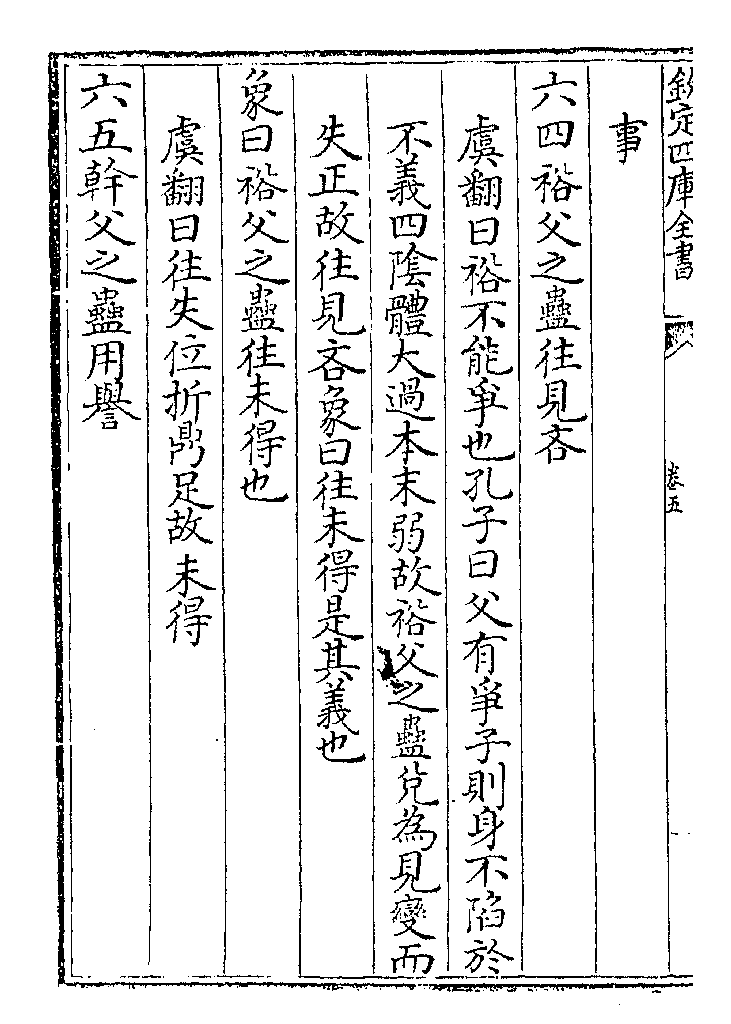 欽定四庫全書
卷五
事
六四裕父之蠱往見吝
虞翻曰裕不能爭也孔子曰父有爭子則身不陷於
不義四陰體大過本末弱故裕父之蠱兌為見變而
失正故往見吝象曰往未得是其義也
象曰裕父之蠱往未得也
虞翻曰往失位折鼎足故未得
六五幹父之蠱用譽